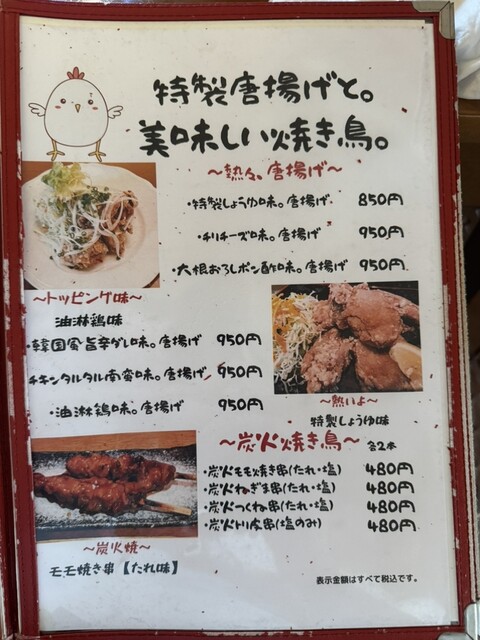 特製唐揚げと。
美味しい焼き鳥。
～熱々。唐揚げ～
・特製しょうゆ味。唐揚げ 850円
・チリチーズ味。唐揚げ 950円
・大根おろしポン酢味。唐揚げ 950円
～トッピング味～
油淋鶏味
・韓国風旨辛ダレ味。唐揚げ 950円
チキンタルタル南蛮味。唐揚げ 950円
・油淋鶏味。唐揚げ 950円
～熱いよ～
特製しょうゆ味
～炭火焼き鳥～ 各2本
・炭火モモ焼き串(たれ・塩) 480円
・炭火ねぎま串(たれ・塩) 480円
・炭火つくね串(たれ・塩) 480円
・炭火トリ皮串(塩のみ) 480円
～炭火焼～
モモ焼き串【たれ味】
表示金額はすべて税込です。